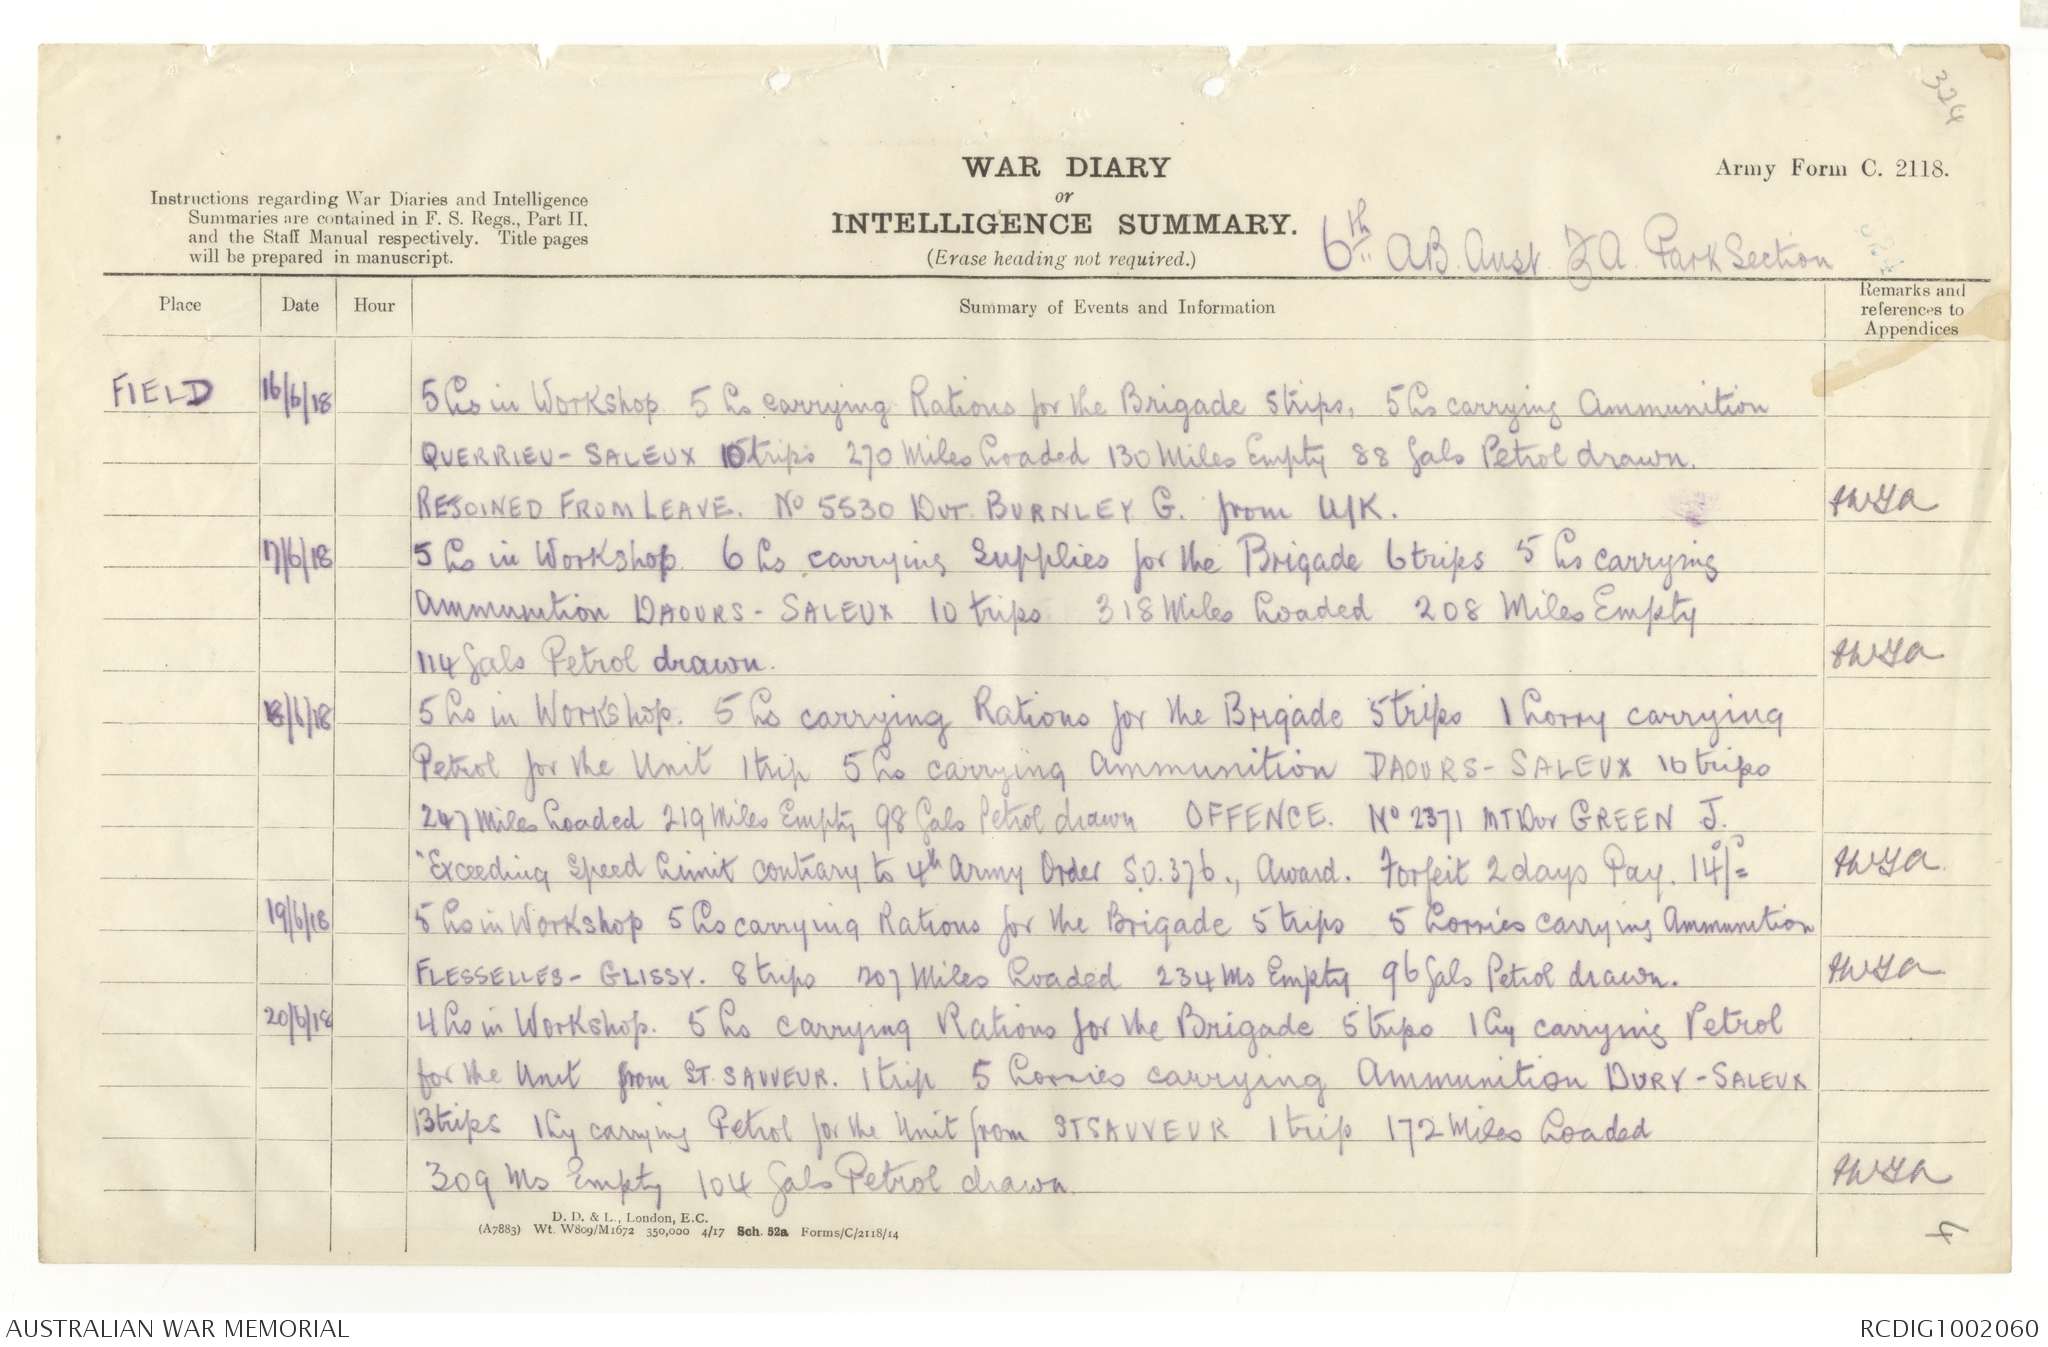 324
WAR DIARY
or
INTELLIGENCE SUMMARY.
(Erase heading not required.)
Army Form C. 2118.
Instructions regarding War Diaries and Intelligence
Summaries are contained in F. S. Regs., Part II.
and the Staff Manual respectively. Title pages
will be prepared in manuscript.
6th AB. Aust. F A. Park Section
Place Date Hour Summary of Events and Information Remarks and references to Appendices
FIELD 16/6/18 5 Ls in Workshop. 5 Ls carrying Rations for the Brigade 5 trips, 5 Ls carrying Ammunition
QUERRIEU - SALEUX 10 trips 270 Miles Loaded 130 Miles Empty 88 Gals Petrol drawn.
REJOINED FROM LEAVE. No 5530 Dvr. BURNLEY G. from U/K.
17/6/18 5 Ls in Workshop. 6 Ls carrying Supplies for the Brigade 6 trips 5 Ls carrying
Ammunition DAOURS - SALEUX 10 trips 318 Miles Loaded 208 Miles Empty
114 Gals Petrol drawn.
18/6/18 5 Ls in Workshop. 5 Ls carrying Rations for the Brigade 5 trips 1 Lorry carrying
Petrol for the Unit 1 trip 5 Ls carrying Ammunition DAOURS - SALEUX 10 trips
247 Miles Loaded 219 Miles Empty 98 Gals Petrol drawn OFFENCE. No 2371 MT Dvr GREEN J.
"Exceeding Speed Limit contrary to 4th Army Order S.O. 376., Award. Forfeit 2 days Pay. 14/=
19/6/18 5 Ls in Workshop 5 Ls carrying Rations for the Brigade 5 trips 5 Lorries carrying Ammunition
FLESSELLES - GLISSY. 8 trips 207 Miles Loaded 234 Ms Empty 96 Gals Petrol drawn.
20/6/18 4 Ls in Workshop. 5 Ls carrying Rations for the Brigade 5 trips 1 Ly carrying Petrol
for the Unit from ST. SAUVEUR. 1 trip 5 Lorries carrying Ammunition DURY - SALEUX
13 trips 1 Ly carrying Petrol for the Unit from ST SAUVEUR 1 trip 172 Miles Loaded
309 Ms Empty 104 Gals Petrol drawn.
D. D. & L., London, E.C.
(A7883) Wt. W809/M1672 350,000 4/17 Sch. 52a Forms/C/2118/14
4
AUSTRALIAN WAR MEMORIAL
RCDIG1002060